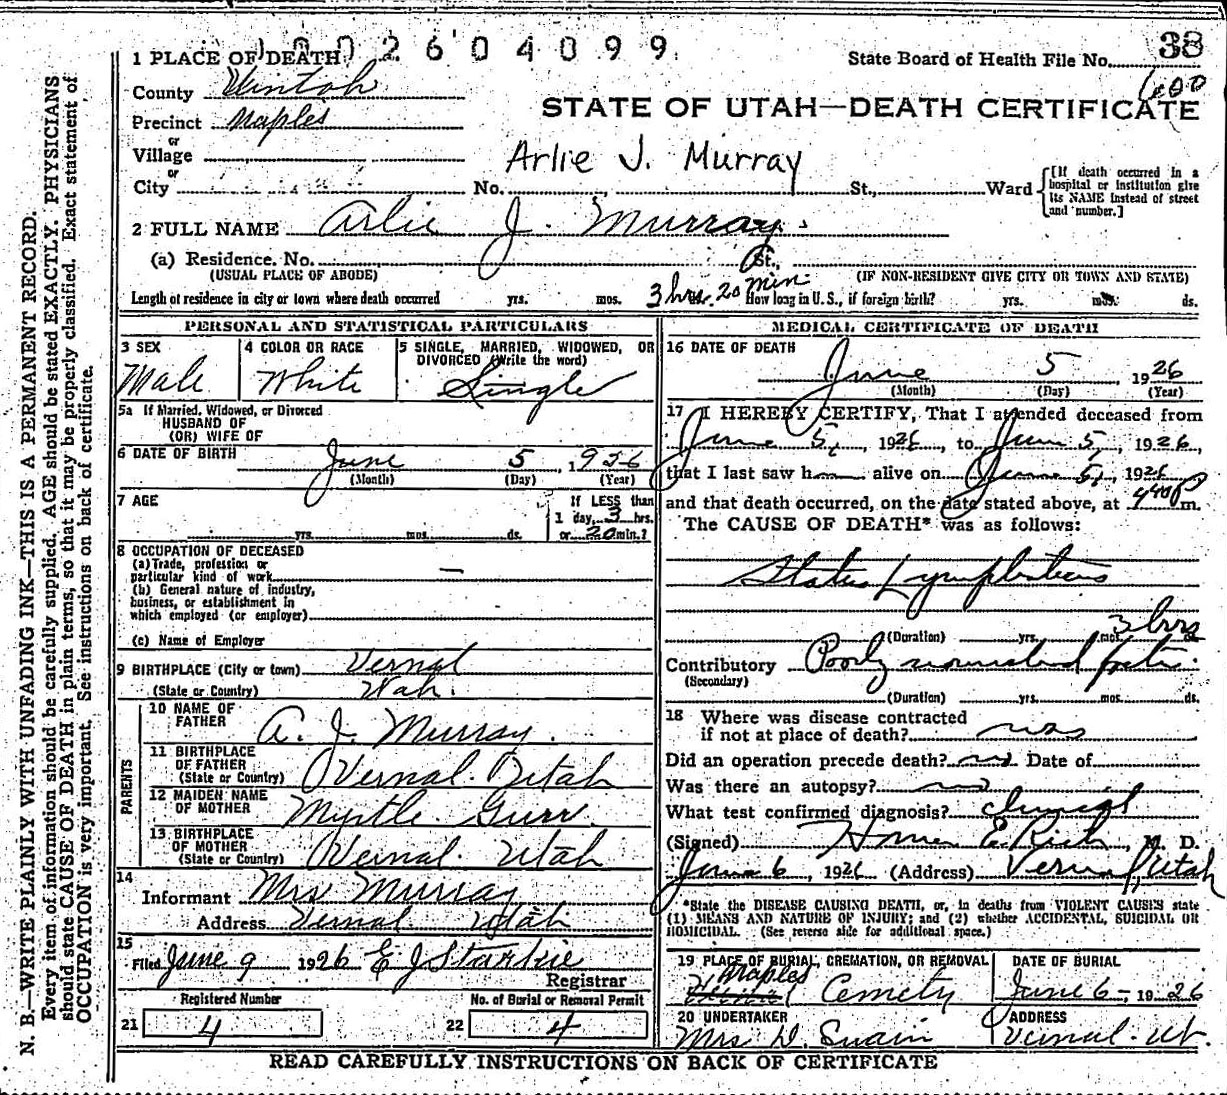 1 PLACE OF DEATH
1002604099
State Board of Health File No. 38
600
County Uintah
STATE OF UTAH—DEATH CERTIFICATE
Precinct Naples
or
Village
Arlie J. Murray
or
City No. St., Ward
[If death occurred in a hospital or institution give its NAME instead of street and number.]
2 FULL NAME Arlie J. Murray
(a) Residence. No. St.,
(USUAL PLACE OF ABODE) (IF NON-RESIDENT GIVE CITY OR TOWN AND STATE)
Length of residence in city or town where death occurred yrs. mos. 3 hrs. 20 min How long in U.S., if foreign birth? yrs. mos. ds.
PERSONAL AND STATISTICAL PARTICULARS
3 SEX Male
4 COLOR OR RACE White
5 SINGLE, MARRIED, WIDOWED, OR DIVORCED (Write the word) Single
5a If Married, Widowed, or Divorced
HUSBAND OF
(OR) WIFE OF
6 DATE OF BIRTH June 5, 1926
(Month) (Day) (Year)
7 AGE yrs. mos. ds.
If LESS than
1 day, 3 hrs.
or 20 min.?
8 OCCUPATION OF DECEASED
(a) Trade, profession or
particular kind of work —
(b) General nature of industry,
business, or establishment in
which employed (or employer)
(c) Name of Employer
9 BIRTHPLACE (City or town) Vernal
(State or Country) Utah.
PARENTS
10 NAME OF FATHER A. J. Murray.
11 BIRTHPLACE OF FATHER (State or Country) Vernal. Utah
12 MAIDEN NAME OF MOTHER Myrtle Gurr.
13 BIRTHPLACE OF MOTHER (State or Country) Vernal. Utah
14
Informant Mrs Murray
Address Vernal Utah
15
Filed June 9 1926 E J Starkie
Registrar
Registered Number No. of Burial or Removal Permit
21 4 22 4
MEDICAL CERTIFICATE OF DEATH
16 DATE OF DEATH
June 5 1926
(Month) (Day) (Year)
17 I HEREBY CERTIFY, That I attended deceased from
June 5, 1926, to June 5, 1926,
that I last saw h alive on June 5, 1926
and that death occurred, on the date stated above, at 440 P m.
The CAUSE OF DEATH* was as follows:
Status Lymphaticus
(Duration) yrs. mos. 3 hrs
Contributory Poorly
(Secondary)
(Duration) yrs. mos. ds.
18 Where was disease contracted
if not at place of death?
Did an operation precede death? no. Date of
Was there an autopsy? no
What test confirmed diagnosis? clinical
(Signed) Homer E. Rich, M. D.
June 6, 1926 (Address) Vernal, Utah
*State the DISEASE CAUSING DEATH, or, in deaths from VIOLENT CAUSES state
(1) MEANS AND NATURE OF INJURY; and (2) whether ACCIDENTAL, SUICIDAL OR
HOMICIDAL. (See reverse side for additional space.)
19 PLACE OF BURIAL, CREMATION, OR REMOVAL
Naples
Cemety
DATE OF BURIAL
June 6- 1926
20 UNDERTAKER
Mrs D. Swain
ADDRESS
Vernal. Ut.
READ CAREFULLY INSTRUCTIONS ON BACK OF CERTIFICATE
N. B.—WRITE PLAINLY WITH UNFADING INK—THIS IS A PERMANENT RECORD.
Every item of information should be carefully supplied. AGE should be stated EXACTLY. PHYSICIANS
should state CAUSE OF DEATH in plain terms, so that it may be properly classified. Exact statement of
OCCUPATION is very important. See instructions on back of certificate.